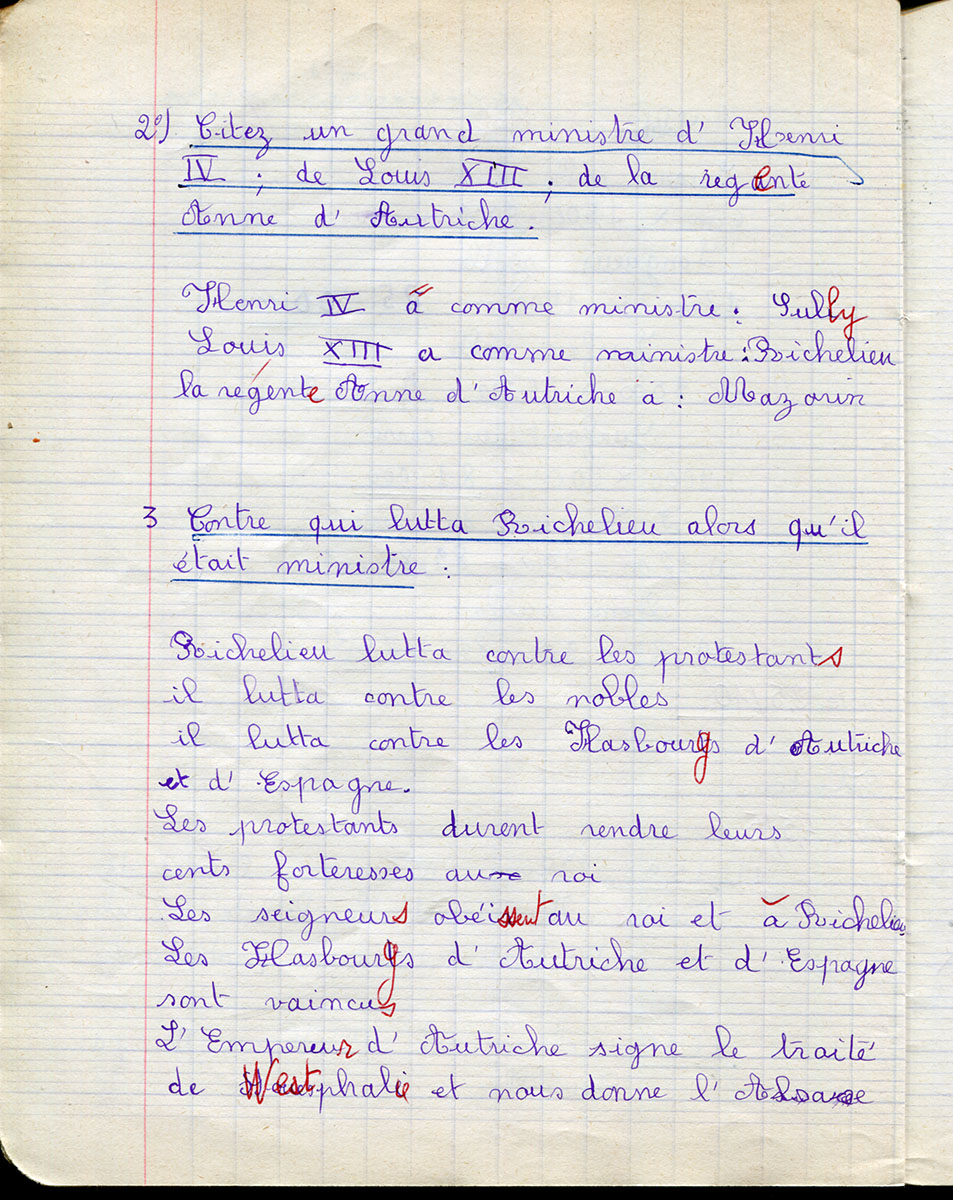 2º) Citez un grand ministre d' Henri
IV ; de Louis XIII ; de la regente
Anne d' Autriche.
Henri IV a comme ministre : Sully
Louis XIII a comme ministre : Richelieu
la régente Anne d' Autriche à : Mazarin
3 Contre qui lutta Richelieu alors qu'il
était ministre :
Richelieu lutta contre les protestants
il lutta contre les nobles
il lutta contre les Hasbourgs d' Autriche
et d' Espagne.
Les protestants durent rendre leurs
cents forteresses au roi
Les seigneurs obéissent au roi et à Richelieu
Les Hasbourgs d' Autriche et d' Espagne
sont vaincus
L' Empereur d' Autriche signe le traité
de Westphalie et nous donne l' Alsace